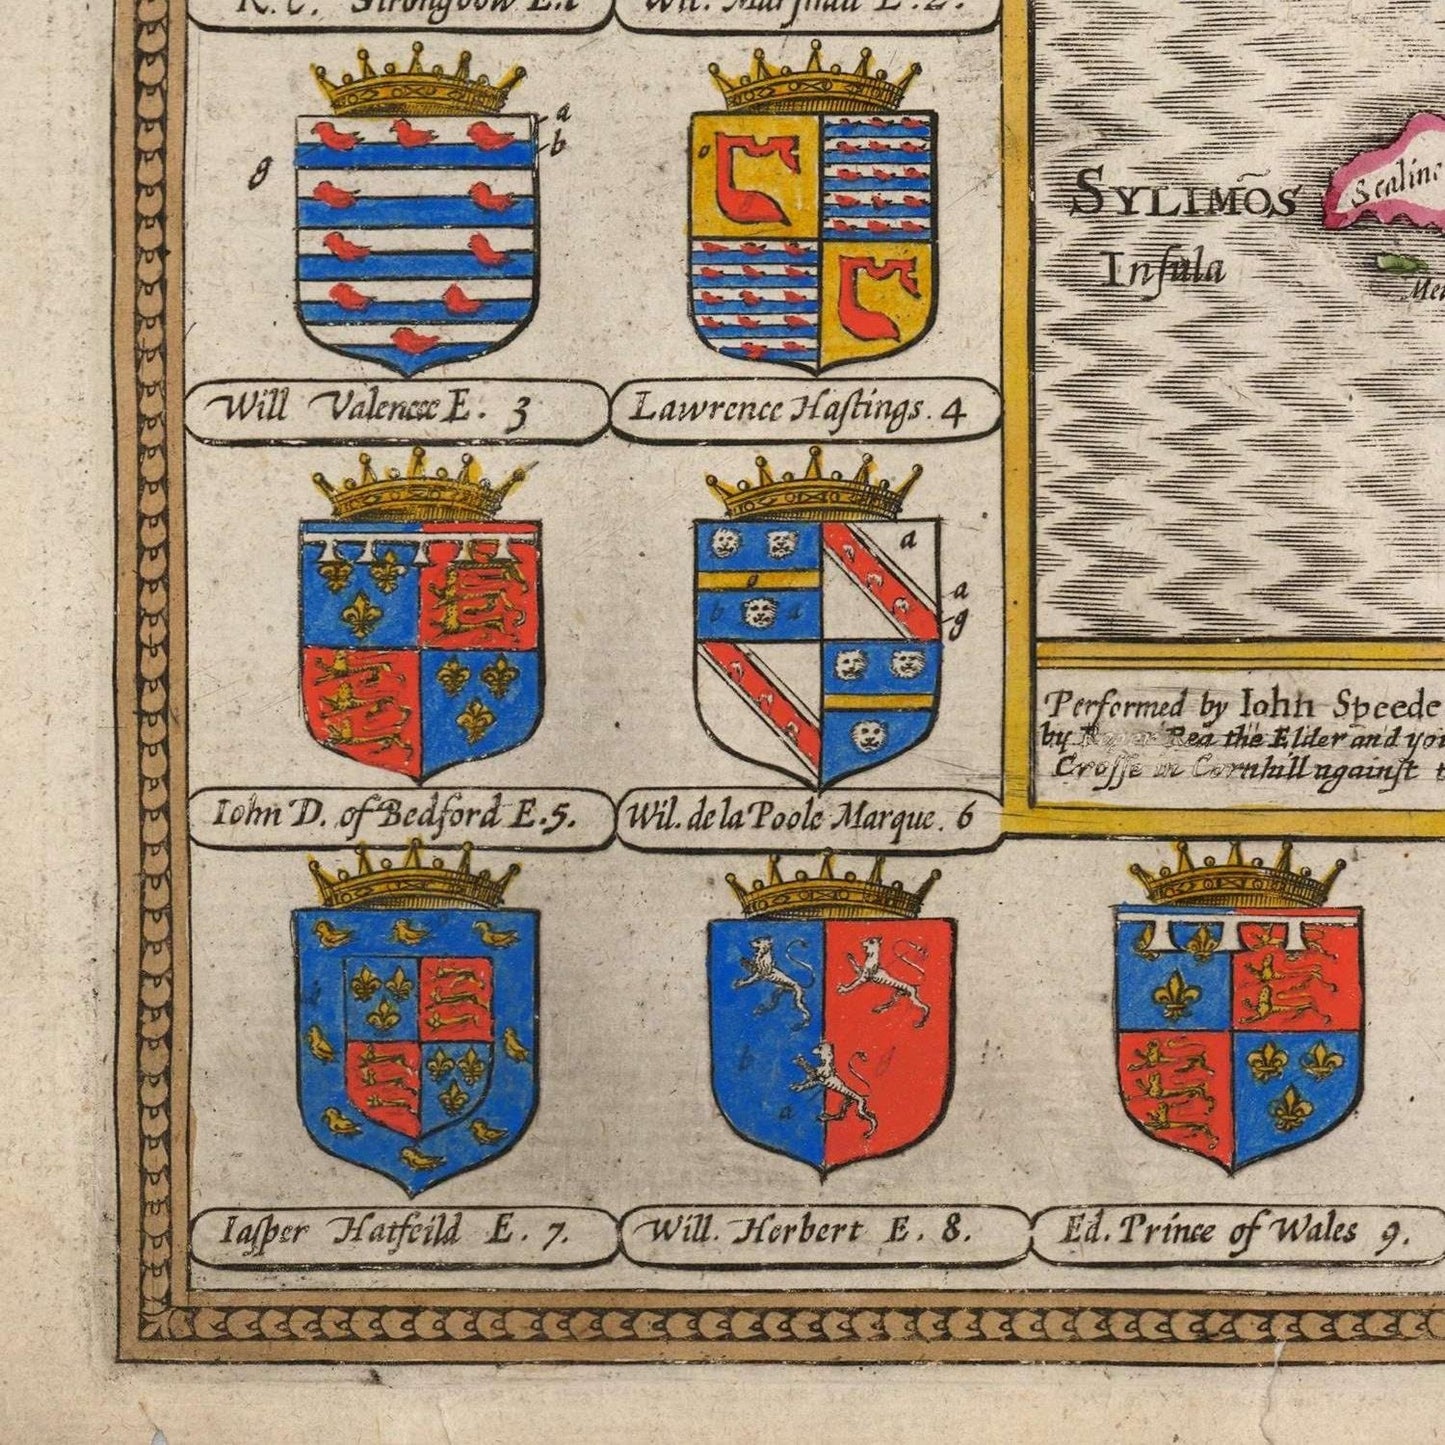 R. C. Strongbow E. 1
Wil. Marſhall E. 2.
g
a
b
o
Will Valence E. 3
Lawrence Haſtings. 4
a
o
b
a
a
g
Iohn D. of Bedford E. 5.
Wil. de la Poole Marque. 6
b
b
g
a
Iaſper Hatfeild E. 7.
Will. Herbert E. 8.
Ed. Prince of Wales 9.
SYLIMŌS
Inſula
Scaline
Performed by Iohn Speede
by Rea the Elder and
Croſſe in Cornhill against